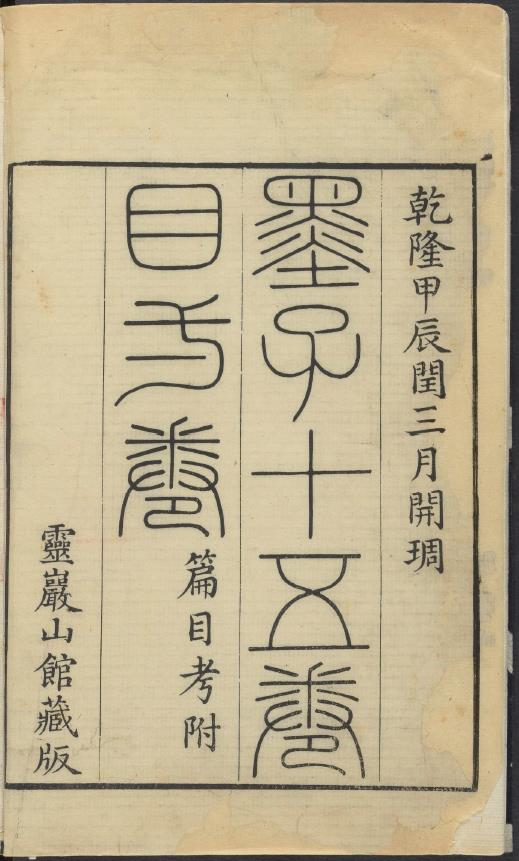 乾隆甲辰閏三月開琱
墨子十五卷
目一卷
篇目考附
靈巖山館藏版